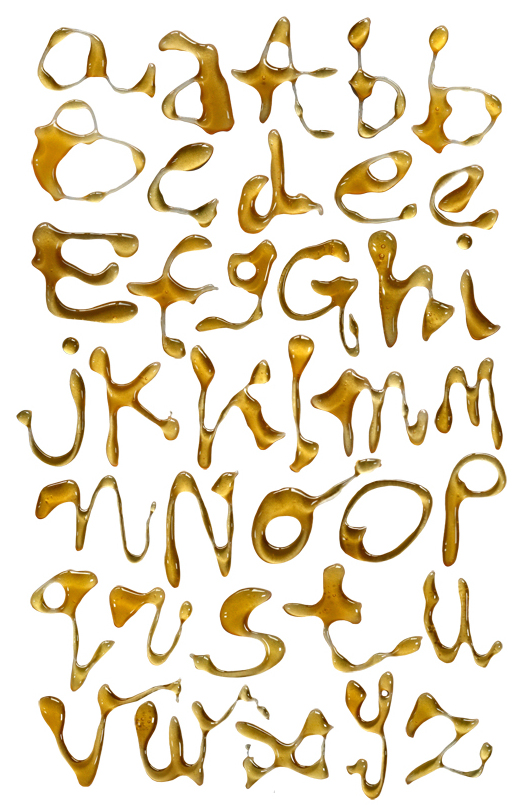 a a A b b
B c d e e
E f g G h i
j K k l m m
n N o O P
q r s t u
v w x y z